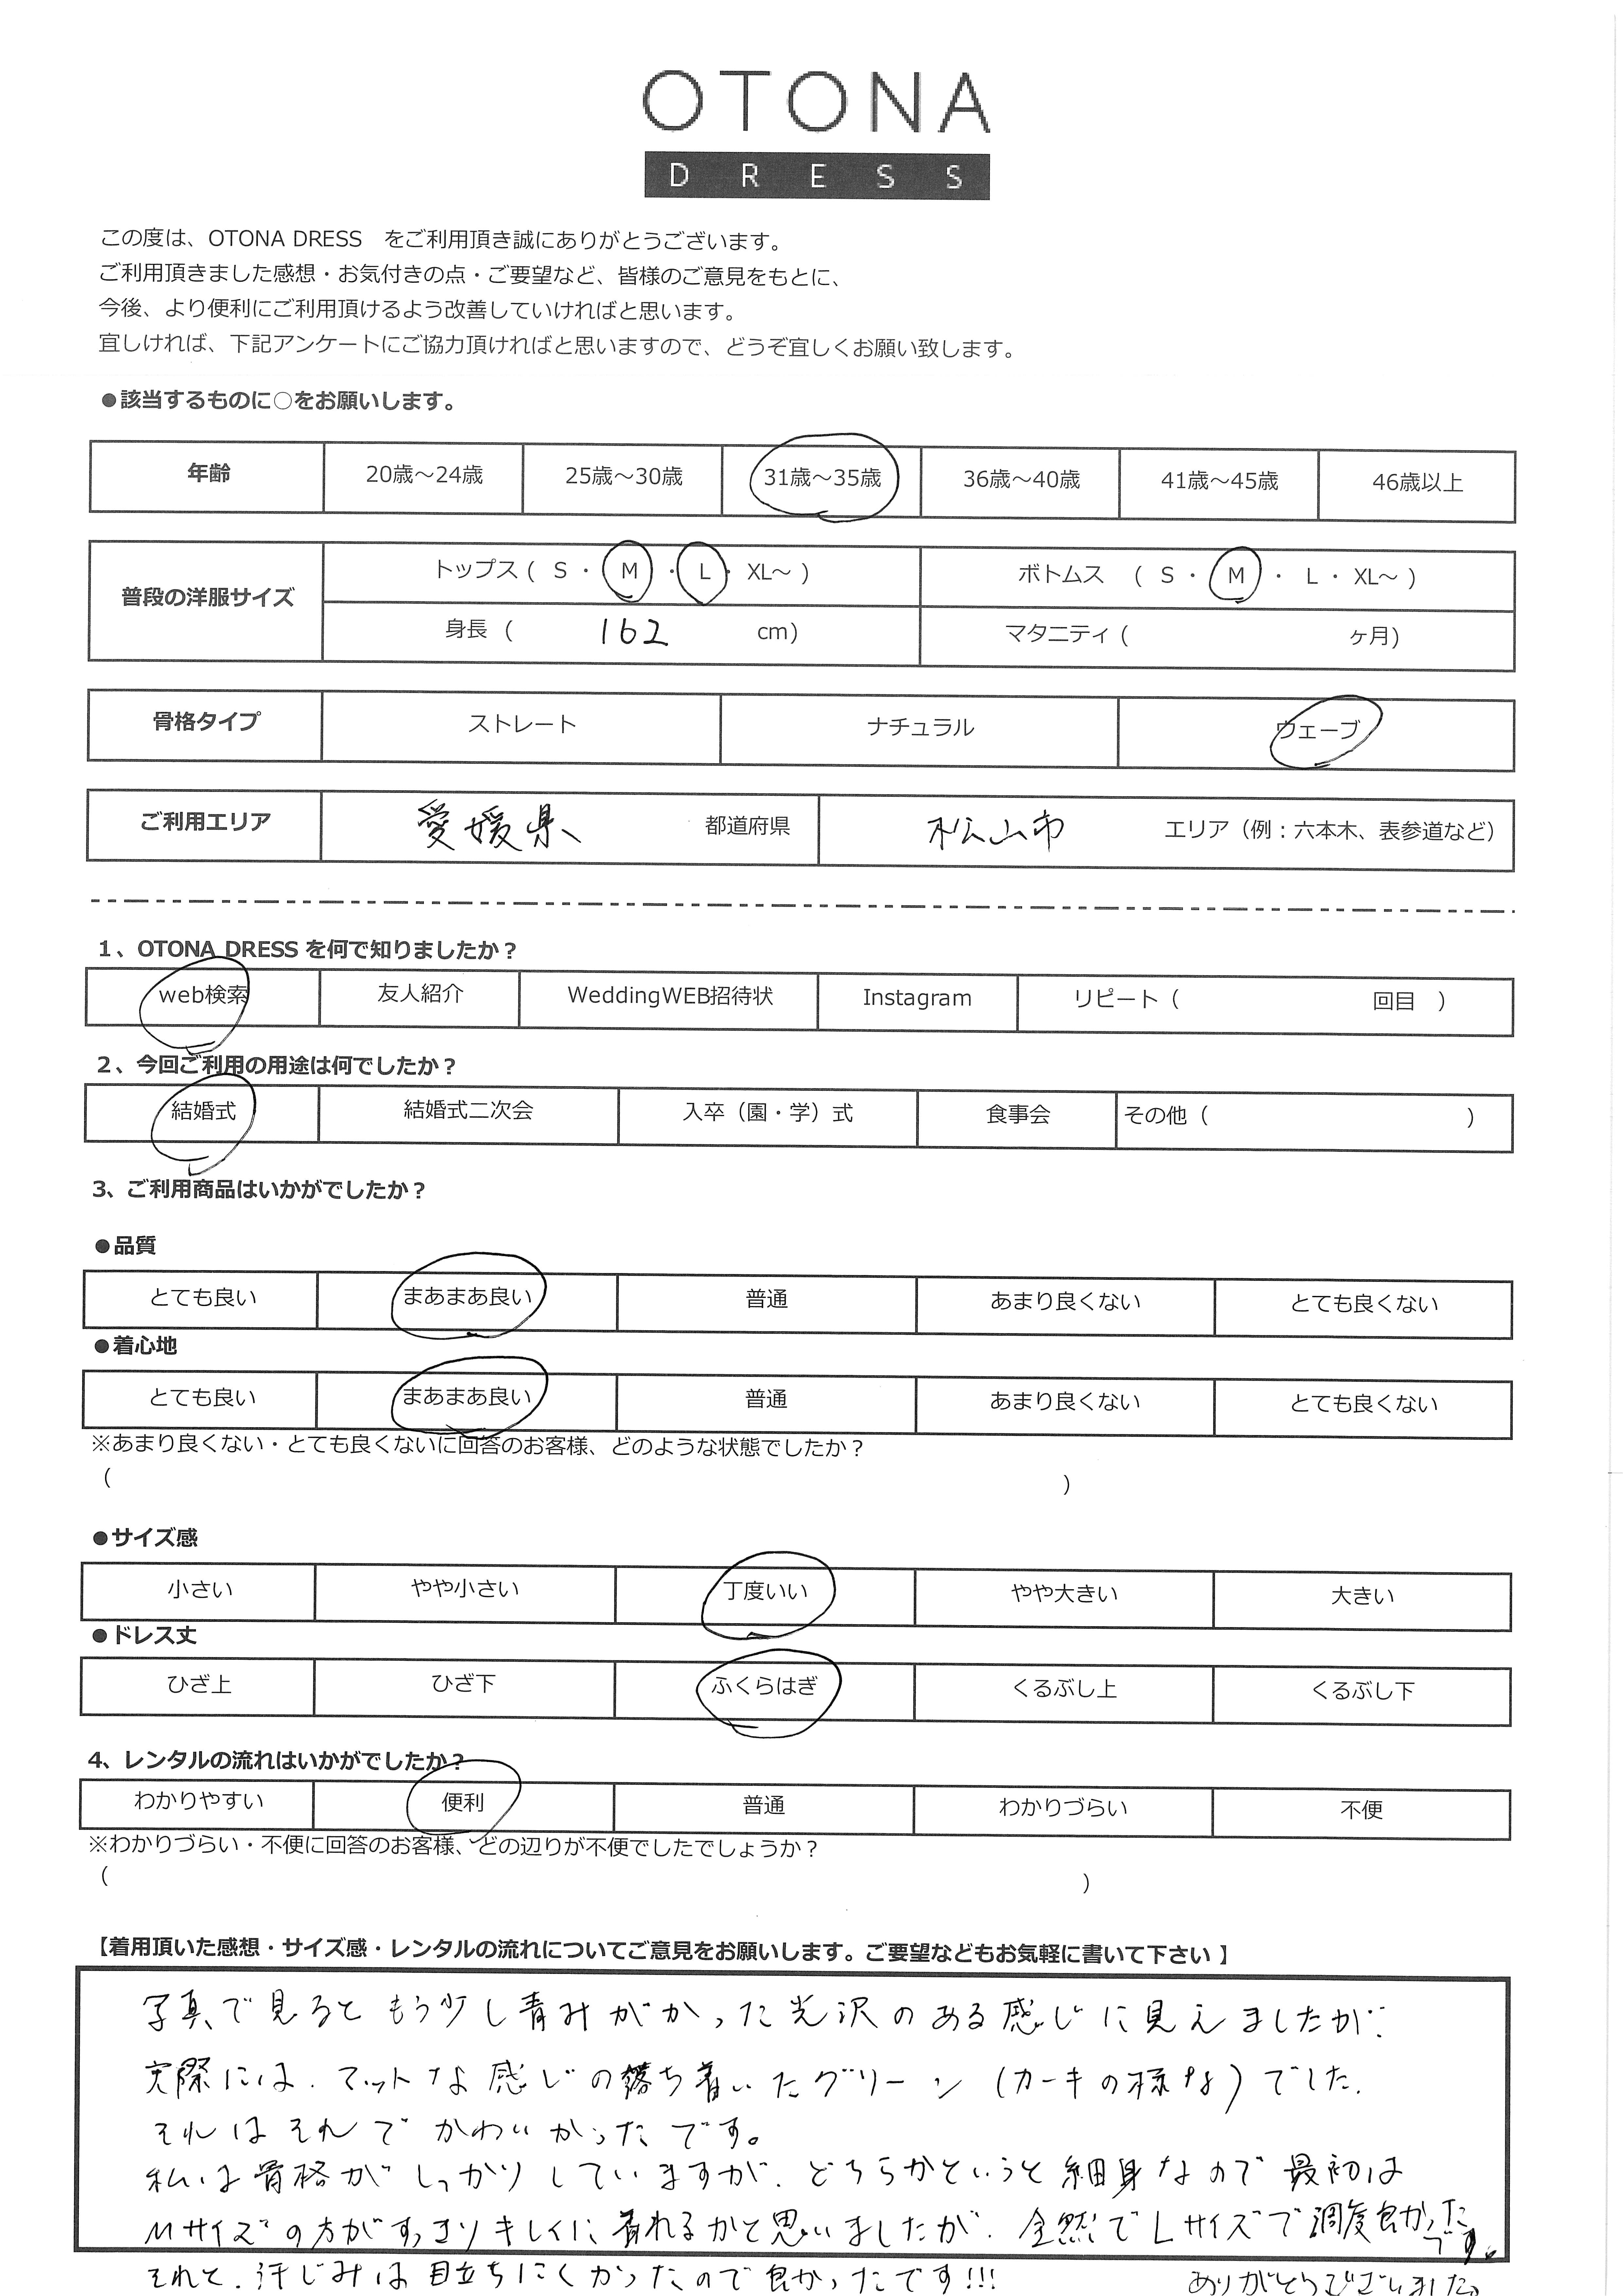 OTONA
DRESS
この度は、OTONA DRESS をご利用頂き誠にありがとうございます。
ご利用頂きました感想・お気付きの点・ご要望など、皆様のご意見をもとに、
今後、より便利にご利用頂けるよう改善していければと思います。
宜しければ、下記アンケートにご協力頂ければと思いますので、どうぞ宜しくお願い致します。
●該当するものに○をお願いします。
年齢 20歳～24歳 25歳～30歳 31歳～35歳 36歳～40歳 41歳～45歳 46歳以上
普段の洋服サイズ トップス ( S ・ M ・ L ・ XL～ ) ボトムス ( S ・ M ・ L ・ XL～ )
身長 ( 162 cm) マタニティ ( ヶ月)
骨格タイプ ストレート ナチュラル ウェーブ
ご利用エリア 愛媛県 都道府県 松山市 エリア（例：六本木、表参道など）
1、OTONA DRESS を何で知りましたか？
web検索 友人紹介 WeddingWEB招待状 Instagram リピート（ 回目 ）
2、今回ご利用の用途は何でしたか？
結婚式 結婚式二次会 入卒（園・学）式 食事会 その他（ ）
3、ご利用商品はいかがでしたか？
●品質
とても良い まあまあ良い 普通 あまり良くない とても良くない
●着心地
とても良い まあまあ良い 普通 あまり良くない とても良くない
※あまり良くない・とても良くないに回答のお客様、どのような状態でしたか？
（ ）
●サイズ感
小さい やや小さい 丁度いい やや大きい 大きい
●ドレス丈
ひざ上 ひざ下 ふくらはぎ くるぶし上 くるぶし下
4、レンタルの流れはいかがでしたか？
わかりやすい 便利 普通 わかりづらい 不便
※わかりづらい・不便に回答のお客様、どの辺りが不便でしたでしょうか？
（ ）
【着用頂いた感想・サイズ感・レンタルの流れについてご意見をお願いします。ご要望などもお気軽に書いて下さい 】
写真で見るともう少し青みがかった光沢のある感じに見えましたが、
実際には、マットな感じの落ち着いたグリーン（カーキの様な）でした。
それはそれでかわいかったです。
私は骨格がしっかりしていますが、どちらかというと細身なので最初は
Mサイズの方がすっきりキレイに着れるかと思いましたが、全然でLサイズで調度良かったです。
それと、汗じみは目立ちにくかったので良かったです!!! ありがとうございました。